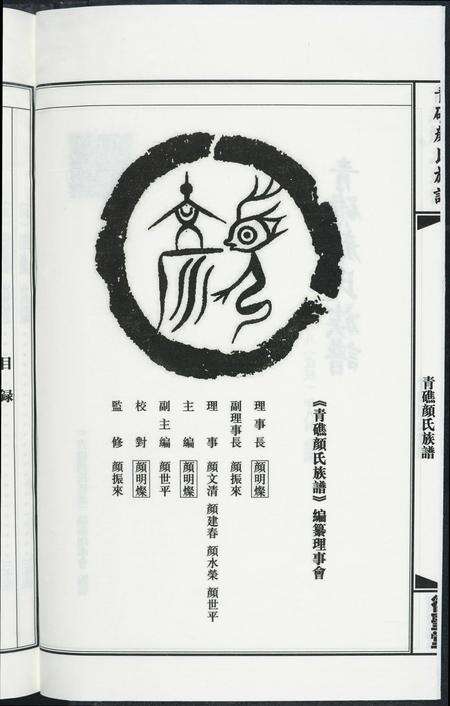 青礁顏氏族譜
青礁顏氏族譜
《青礁顏氏族譜》編纂理事會
理事長 顏明燦
副理事長 顏振來
理事 顏文清 顏建春 顏水榮 顏世平
主編 顏明燦
副主編 顏世平
校對 顏明燦
監修 顏振來
目录